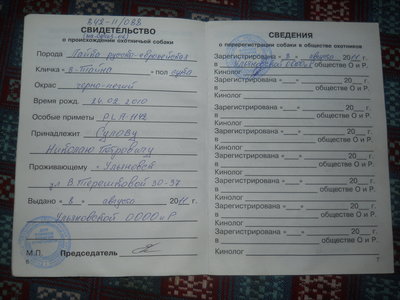 842-11/088
СВИДЕТЕЛЬСТВО
о происхождении охотничьей собаки
Порода Лайка русско-европейская
Кличка « Тайна » пол сука
Окрас черно-пегий
Время рожд. 24.02.2010
Особые приметы DLA 1142
Принадлежит Сулову
Николаю Петровичу
Проживающему г. Ульяновск
ул. В. Терешковой 30-37
Выдано « 8 » августа 2011 г.
Ульяновской ОООиР
М.П. Председатель
СВЕДЕНИЯ
о перерегистрации собаки в обществе охотников
Зарегистрировано « 8 » августа 2011 г.
в Ульяновской обществе О и Р.
Кинолог
Зарегистрировано « » 20 г.
в обществе О и Р.
Кинолог
Зарегистрировано « » 20 г.
в обществе О и Р.
Кинолог
Зарегистрировано « » 20 г.
в обществе О и Р.
Кинолог
Зарегистрировано « » 20 г.
в обществе О и Р.
Кинолог
Зарегистрировано « » 20 г.
в обществе О и Р.
Кинолог
Зарегистрировано « » 20 г.
в обществе О и Р.
Кинолог
Зарегистрировано « » 20 г.
в обществе О и Р.
Кинолог
7